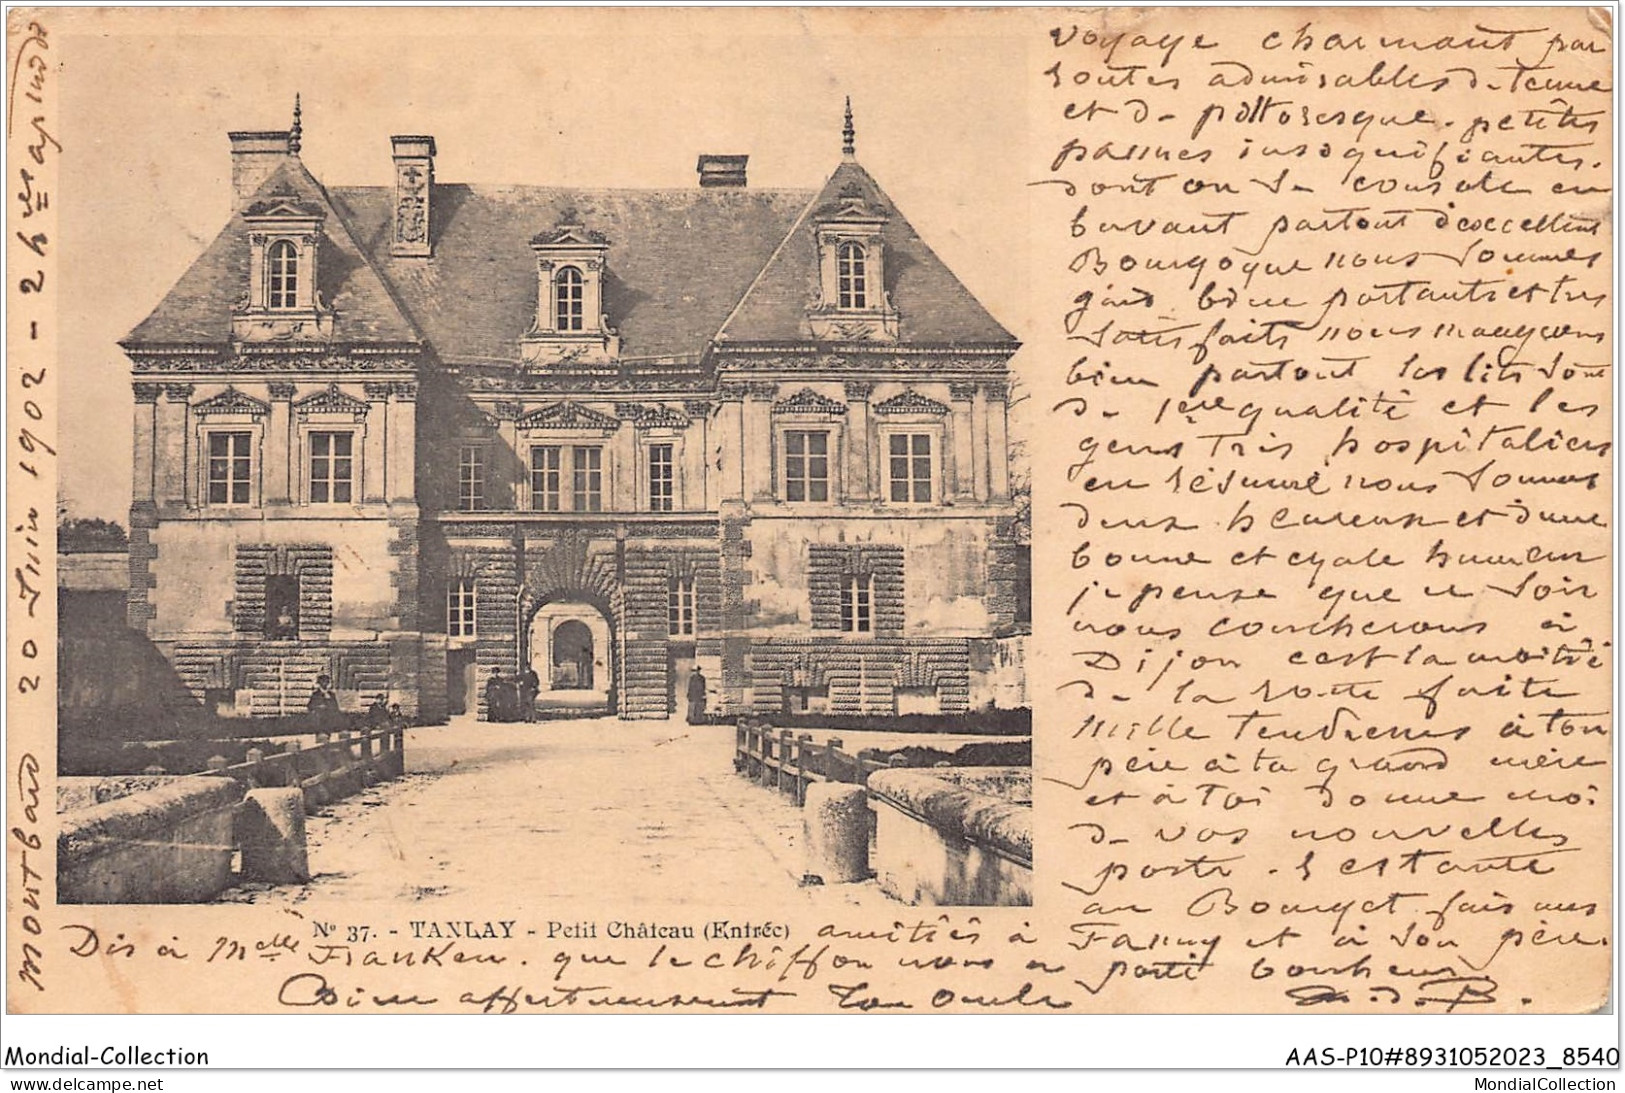 montbard 20 Juin 1902 - 2 hres après midi
voyage charmant par
routes admirables de tenue
et de pittoresque. petites
pannes insignifiantes.
dont on se console en
buvant partout d'excellent
Bourgogne nous sommes
gais bien portants et très
satisfaits nous mangeons
bien partout les lits sont
de 1ere qualité et les
gens très hospitaliers
en résumé nous sommes
deux heureux et d'une
bonne et égale humeur
je pense que ce soir
nous coucherons à
Dijon c'est la moitié
de la route faite
Mille tendresses à ton
père à ta grand mère
et à toi donne moi
de vos nouvelles
poste restante
au Bourget fais mes
No 37. - TANLAY - Petit Château (Entrée) amitiés à Fanny et à son père.
Dis à Melle Franken. que le chiffon nous a porté bonheur.
Bien affectueusement ton oncle
Mondial-Collection
AAS-P10#8931052023_8540
delcampe.net
MondialCollection